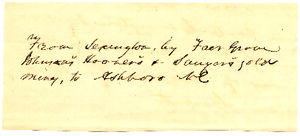 From Lexington, by Fair Grove
Johnson's Hoover's & Sawyer's gold
mines, to Ashboro NC